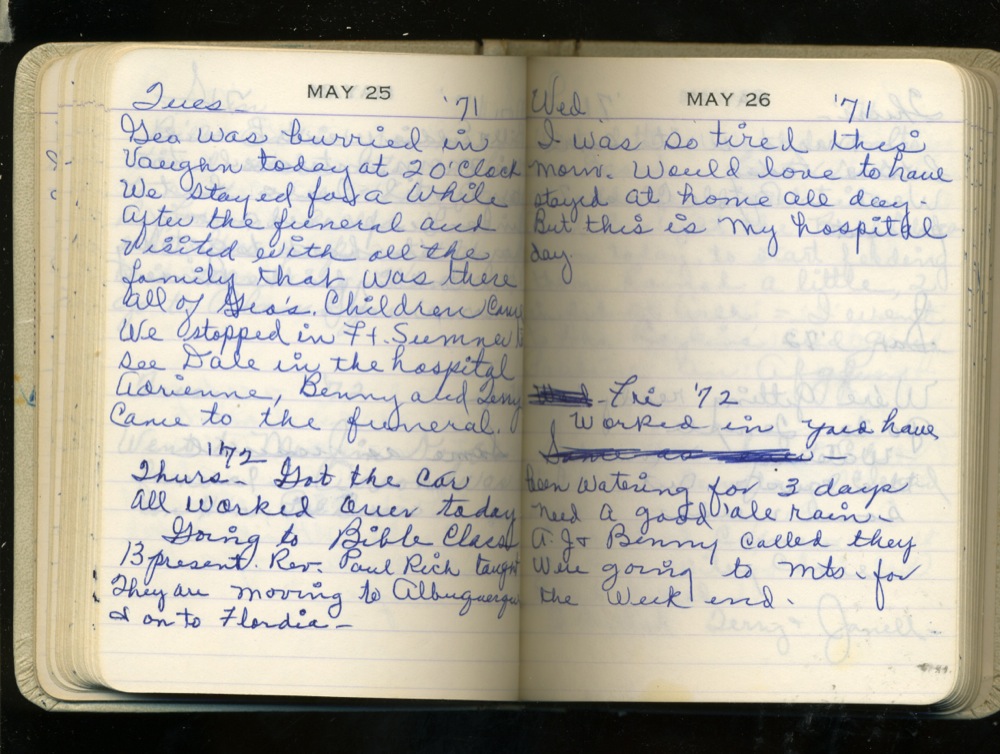 MAY 25
Tues- '71
Geo was burried in
Vaughn today at 2 O'Clock
We stayed for a while
after the funeral and
visited with all the
family that was there
all of Geo's. Children Came
We stopped in Ft. Sumner to
see Dale in the hospital
Adrienne, Benny and Terry
Came to the funeral.
1972
Thurs- Got the Car
all worked over today
Going to Bible Class
13 present. Rev. Paul Rich taught
They are moving to Albuquerque
& on to Flordia-
MAY 26
Wed '71
I was so tired this
morn. Would love to have
stayed at home all day.
But this is my hospital
day.
Wed - Fri '72
Worked in yard have
Same as
been watering for 3 days
need a good ole rain-
A.J + Benny called they
were going to mts. for
the week end.
Terry + Janell-